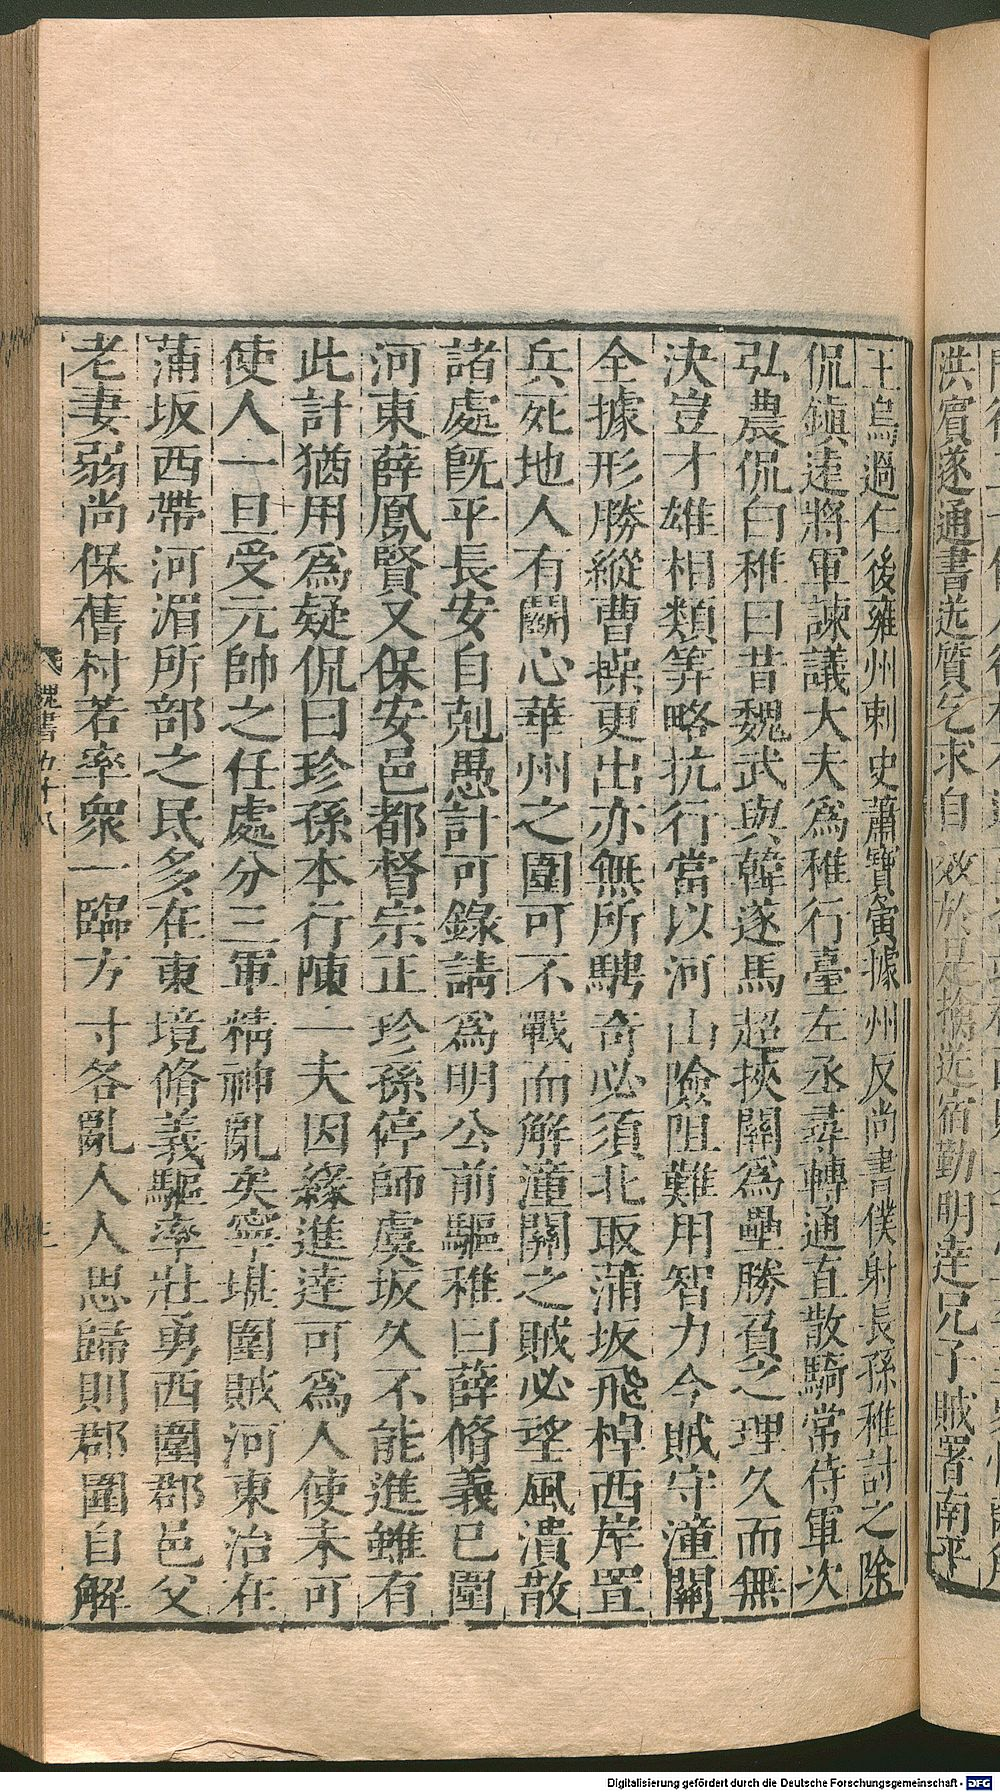 洪賓遂通書送質乞求自效於是擒送宿勤明達兄子賊署南平
王烏過仁後雍州刺史蕭寶夤據州反尚書僕射長孫稚討之除
侃鎮遠將軍諫議大夫為稚行臺左丞尋轉通直散騎常侍軍次
弘農侃白稚曰昔魏武與韓遂馬超挾關為壘勝負之理久而無
決豈才雄相類筭略抗行當以河山險阻難用智力今賊守潼關
全據形勝縱曹操更出亦無所騁奇必須北取蒲坂飛棹西岸置
兵死地人有鬭心華州之圍可不戰而解潼關之賊必望風潰散
諸處旣平長安自剋愚計可錄請為明公前驅稚曰薛脩義已圍
河東薛鳳賢又保安邑都督宗正珍孫停師虞坂久不能進雖有
此計猶用為疑侃曰珍孫本行陳一夫因緣進達可為人使未可
使人一旦受元帥之任處分三軍精神亂矣寧堪圍賊河東治在
蒲坂西帶河湄所部之民多在東境脩義驅率壯勇西圍郡邑父
老妻弱尚保舊村若率衆一臨方寸各亂人人思歸則郡圍自解
魏書九十八
Digitalisierung gefördert durch die Deutsche Forschungsgemeinschaft - DFG